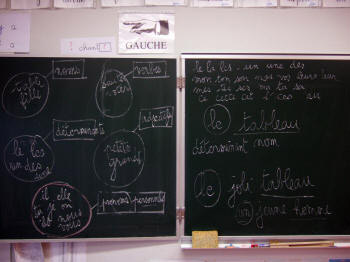 GAUCHE
noms
table
fille
verbes
sauter
voir
adjectifs
petite
grand
déterminants
le les
un des
une
pronoms personnels
il elle
tu je on
nous
vous
le la les - un une des
mon ton son mes vos leurs leur
mes tes ses ma ta sa
ce cette cet l' ces au
le tableau
déterminant nom
le joli tableau
un jeune homme